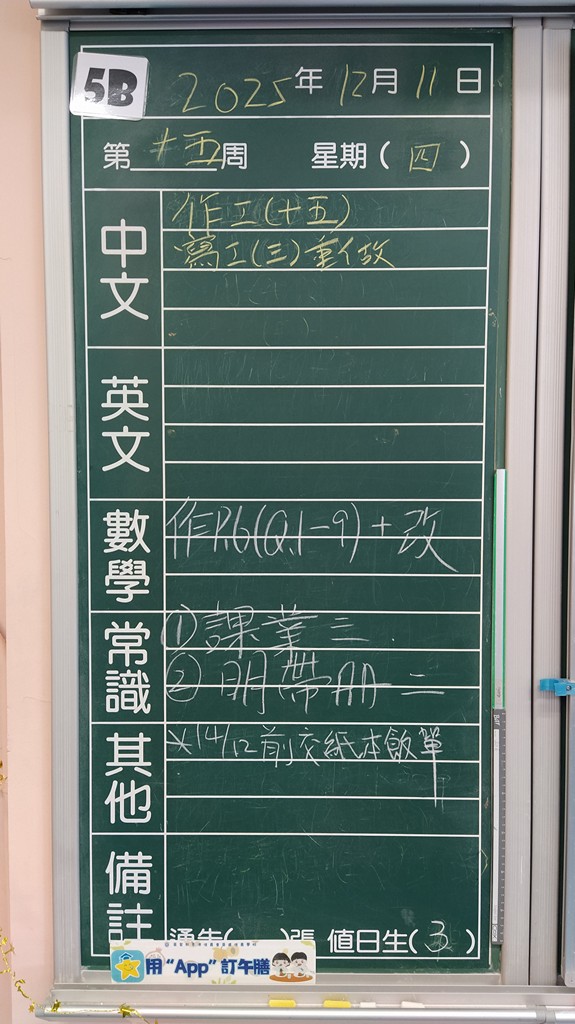 5B
2025年12月11日
第十五周 星期(四)
中文
作工(十五)
寫工(三)重做
英文
數學
作P.6(Q.1-9)+改
常識
①課業三.
②明帶冊二
其他
※14/12前交紙本飯單
備註
通告( )張 值日生(3)
用“App”訂午膳